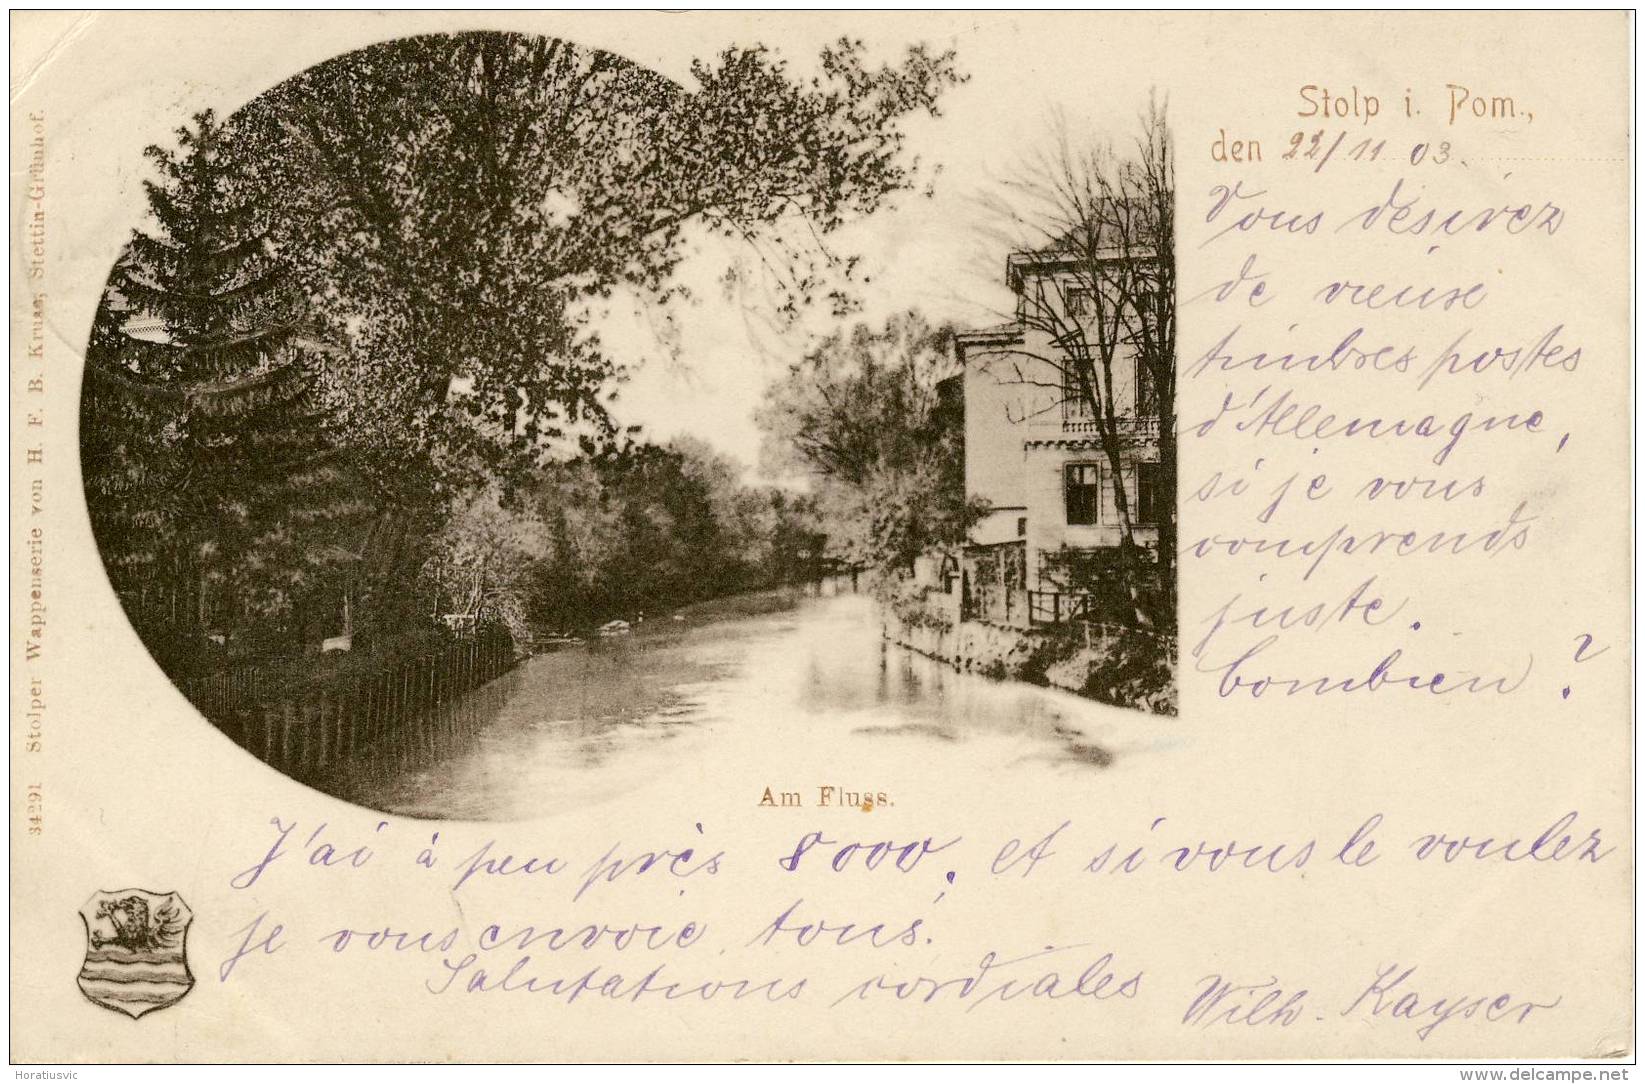 Stolp i. Pom.,
den 22/11 03.
Vous désirez
de vieuse
timbres postes
d'Allemagne,
si je vous
comprends
juste.
Combien?
Am Fluss.
J'ai à peu près 8000, et si vous le voulez
je vous envoie tous.
Salutations cordiales
Wilh. Kayser
34291 Stolper Wappenserie von H. F. B. Kruse, Stettin-Grünhof.
Horatiusvic
delcampe.net